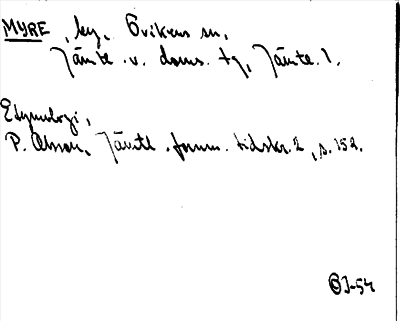 MYRE, by, Ovikens sn,
Jämtl. v. doms. tg, Jämtl. l.
Etymologi,
P. Olsson, Jämtl. fornm. tidskr. 2, s. 152.
ÖJ-54